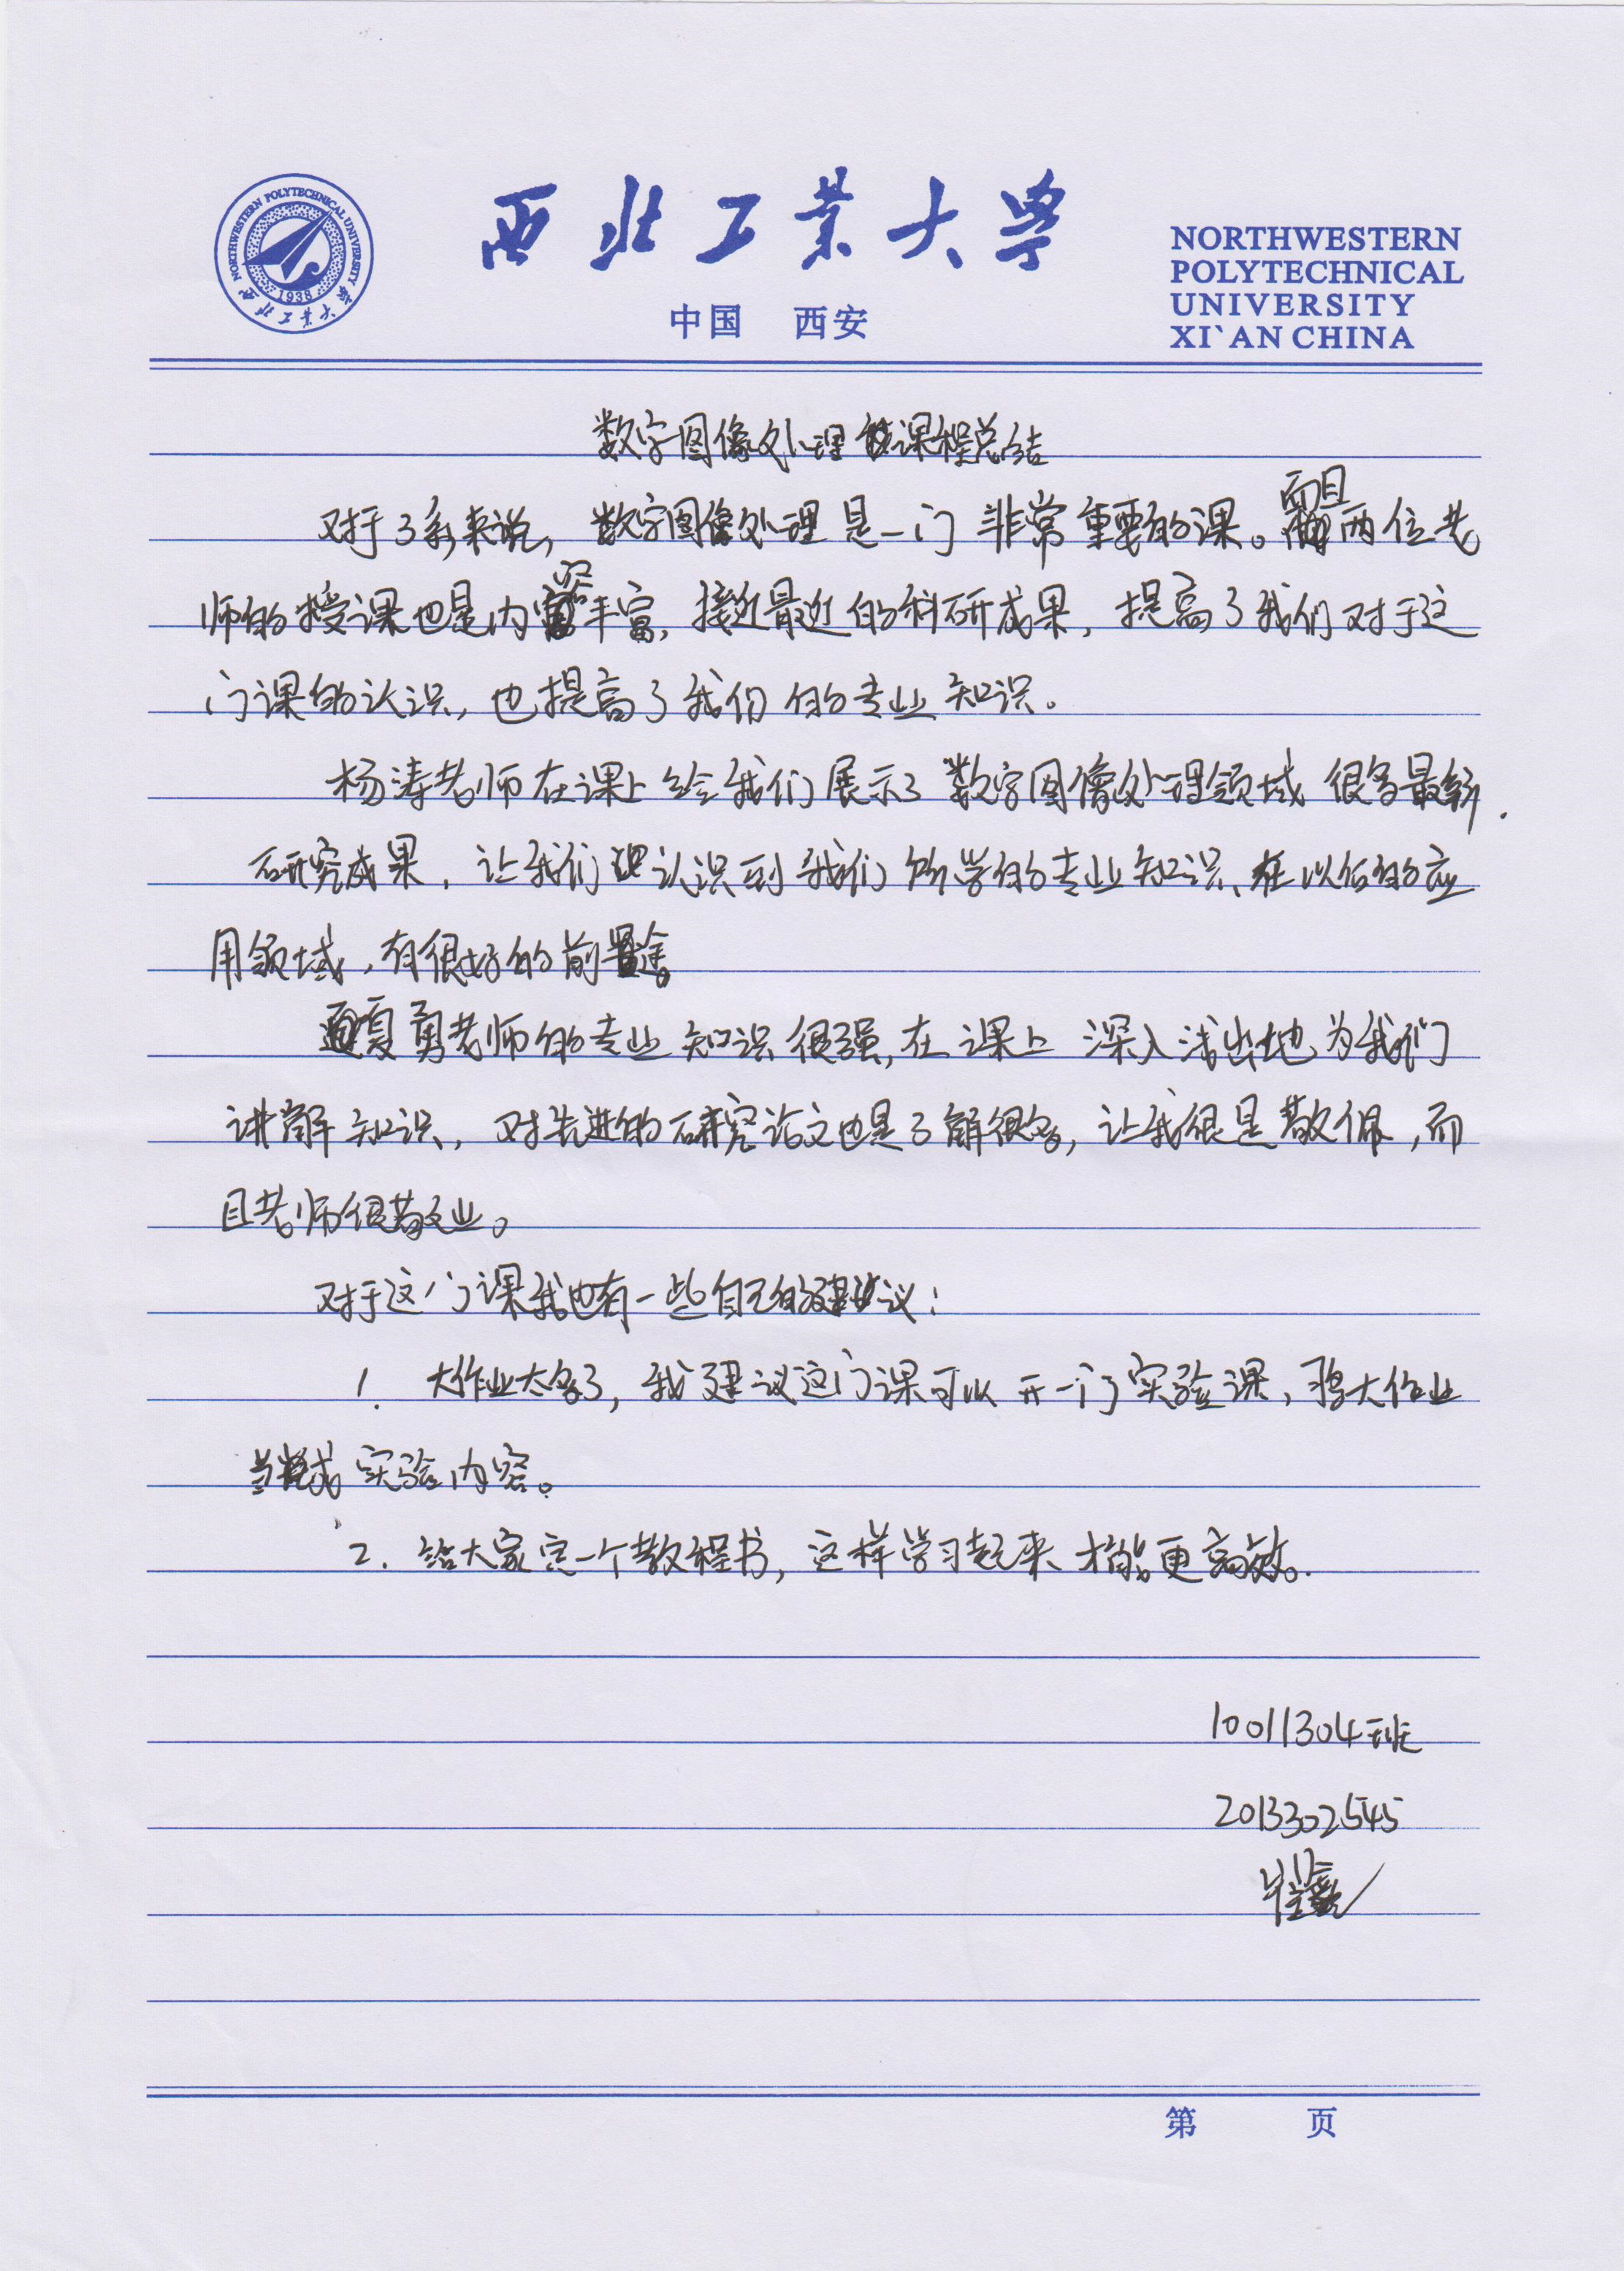 NORTHWESTERN POLYTECHNICAL UNIVERSITY
1938
西北工业大学
西北工业大学
中国 西安
NORTHWESTERN
POLYTECHNICAL
UNIVERSITY
XI`AN CHINA
数字图像处理课程总结
对于3系来说，数字图像处理是一门非常重要的课。而且两位老
师的授课也是内容丰富，接近最近的科研成果，提高了我们对于这
门课的认识，也提高了我们的专业知识。
杨涛老师在课上给我们展示了数字图像处理领域很多最新
研究成果，让我们认识到我们所学的专业知识，在以后的应
用领域，有很好的前途。
夏勇老师的专业知识很强，在课上深入浅出地为我们
讲解知识，对先进的研究论文也是了解很多，让我很是敬佩，而
且老师很敬业。
对于这门课我也有一些自己的建议：
1. 大作业太多了，我建议这门课可以开一个门实验课，将大作业
当成实验内容。
2. 给大家定一个教程书，这样学习起来才能更高效。
10011304班
2013302545
第 页